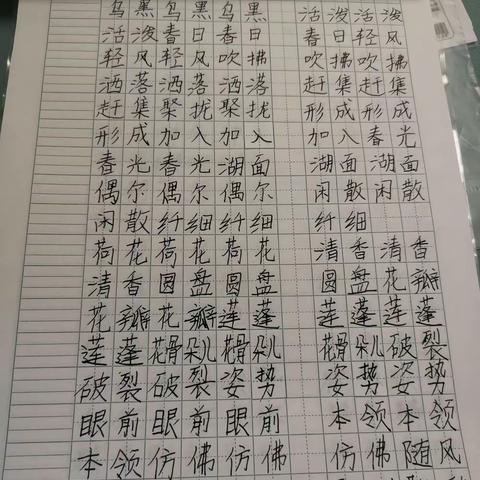 乌黑乌黑乌黑 活泼活泼
活泼春日春日 春日轻风
轻风轻风吹拂 吹拂吹拂
洒落洒落洒落 赶集赶集
赶集聚拢聚拢 形成形成
形成加入加入 加入春光
春光春光湖面 湖面湖面
偶尔偶尔偶尔 闲散闲散
闲散纤细纤细 纤细
荷花荷花荷花 清香清香
清香圆盘圆盘 圆盘花瓣
花瓣花瓣莲蓬 莲蓬莲蓬
莲蓬花骨朵儿花骨朵儿 花骨朵儿破裂
破裂破裂姿势 姿势姿势
眼前眼前眼前 本领本领
本领仿佛仿佛 仿佛随风